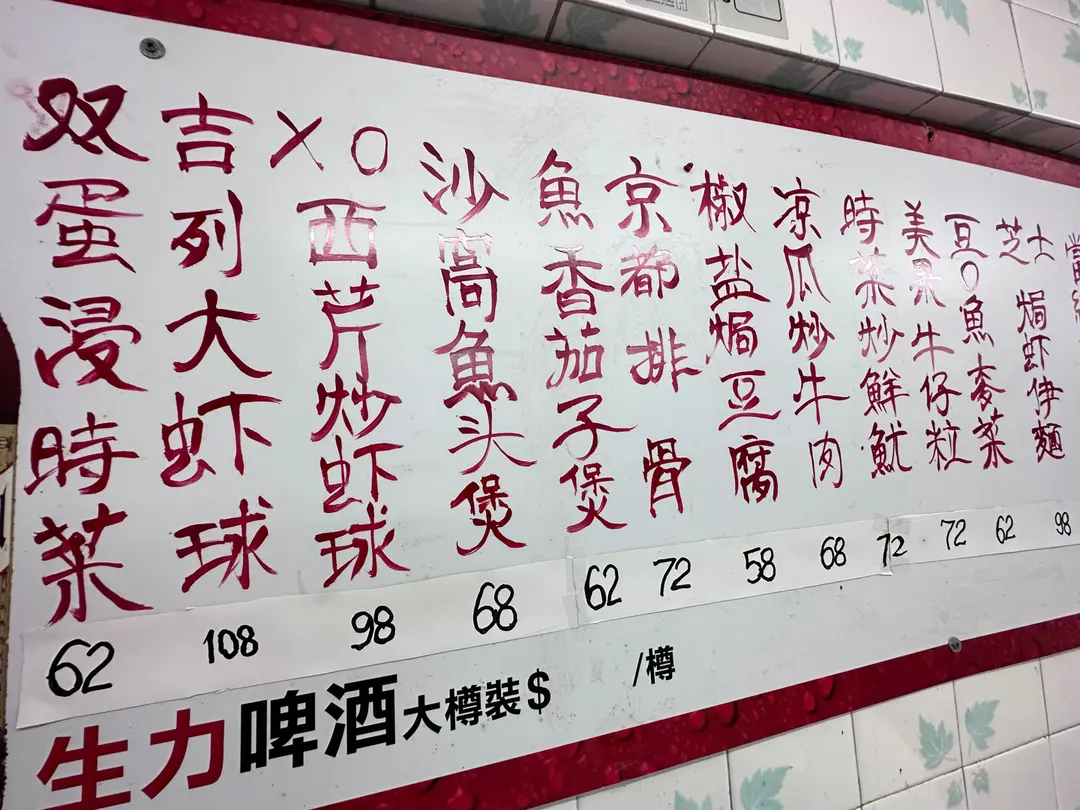 双蛋浸時菜
吉列大虾球
XO西芹炒虾球
沙窩魚头煲
魚香茄子煲
京都排骨
椒盐焗豆腐
凉瓜炒牛肉
時菜炒鮮魷
美果牛仔粒
豆O魚麦菜
芝士焗虾伊麵
62
108
98
68
62
72
58
68
72
72
62
98
生力啤酒大樽裝$ /樽